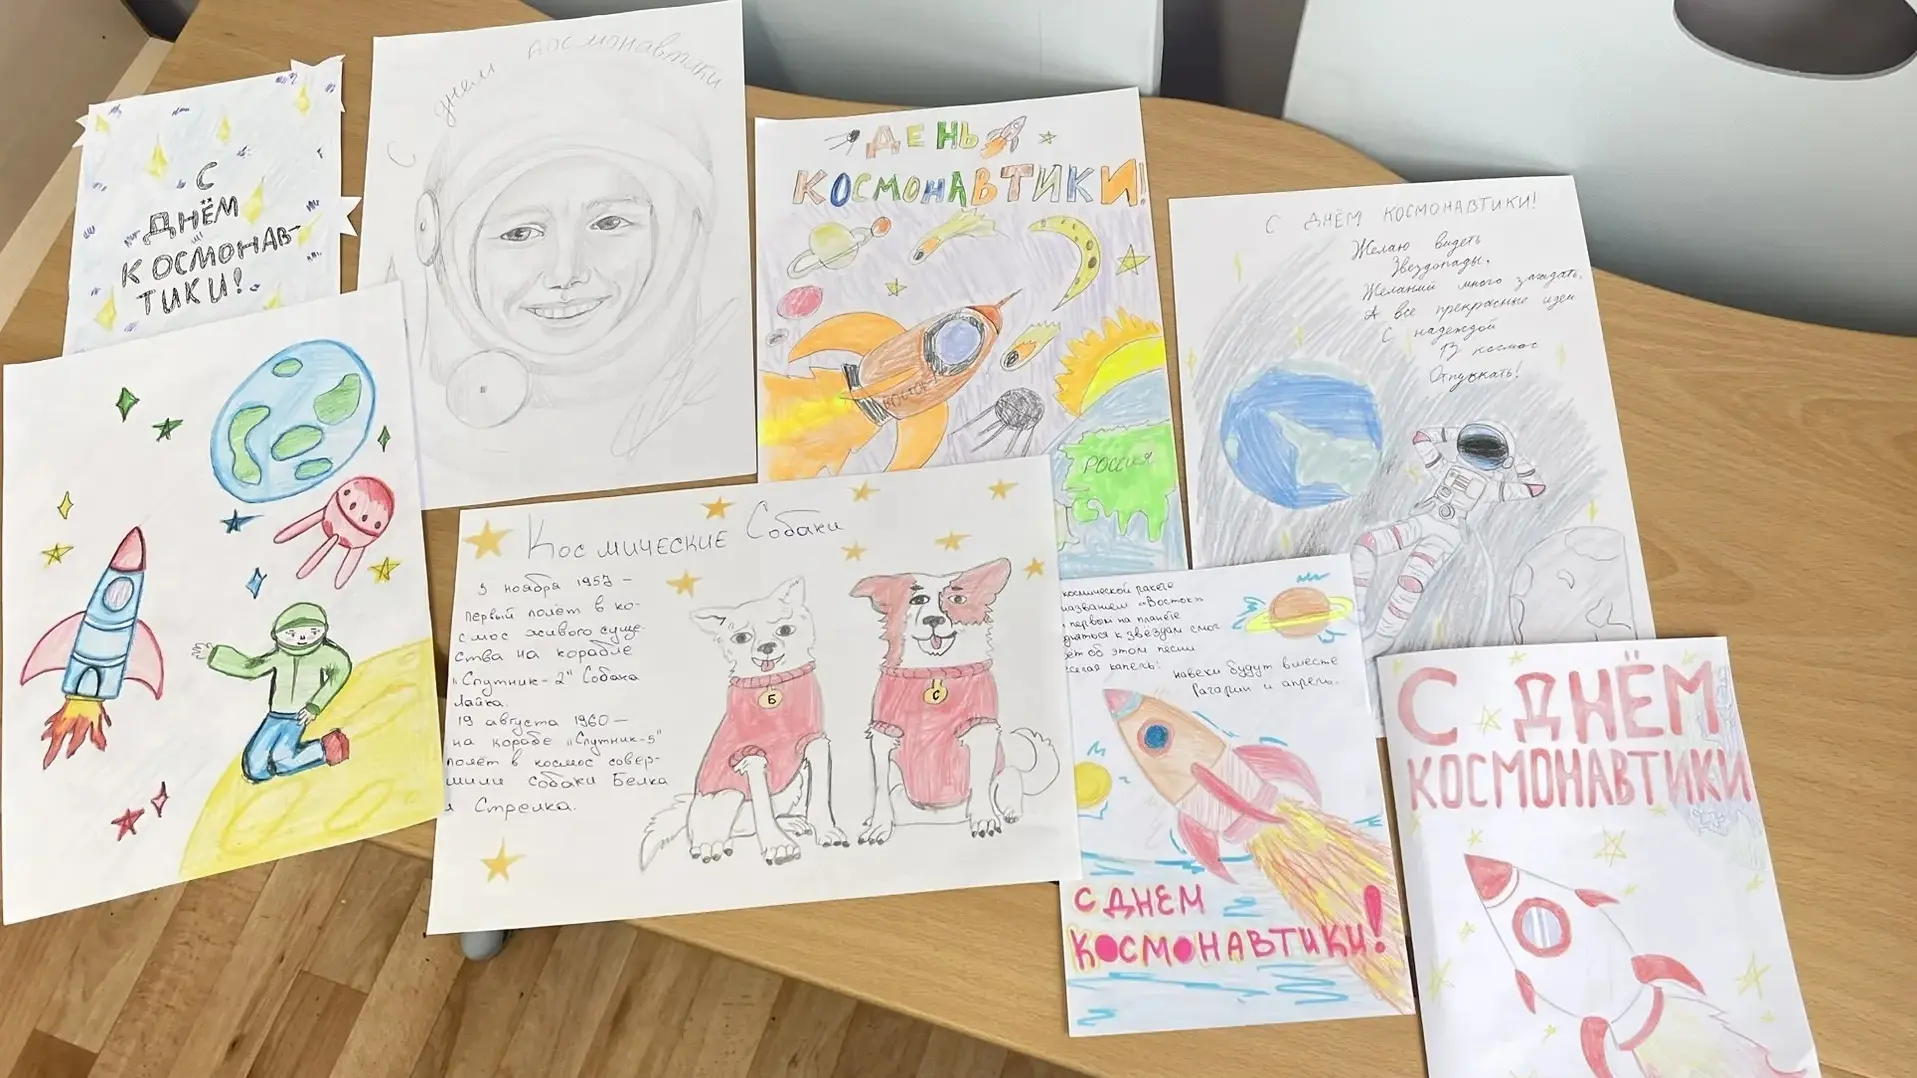 С
ДНЁМ
КОСМОНАВ-
ТИКИ!
С днем космонавтики
ДЕНЬ
КОСМОНАВТИКИ!
ВОСТОК
РОССИЯ
С ДНЁМ КОСМОНАВТИКИ!
Желаю видеть
Звездопады,
Желаний много загадать,
А все прекрасные идеи
С надеждой
В космос
Отпускать!
Космические Собаки
3 ноября 1957 –
Первый полёт в ко-
смос живого суще-
ства на корабле
"Спутник-2" Собака
Лайка.
19 августа 1960 –
на корабле "Спутник-5"
полёт в космос совер-
шили собаки Белка
и Стрелка.
Б
С
космической ракете
названием «Восток»
первом на планете
подняться к звёздам смог
ет об этом песни
капель:
навеки будут вместе
Гагарин и апрель.
С ДНЕМ
КОСМОНАВТИКИ!
С ДНЁМ
КОСМОНАВТИКИ